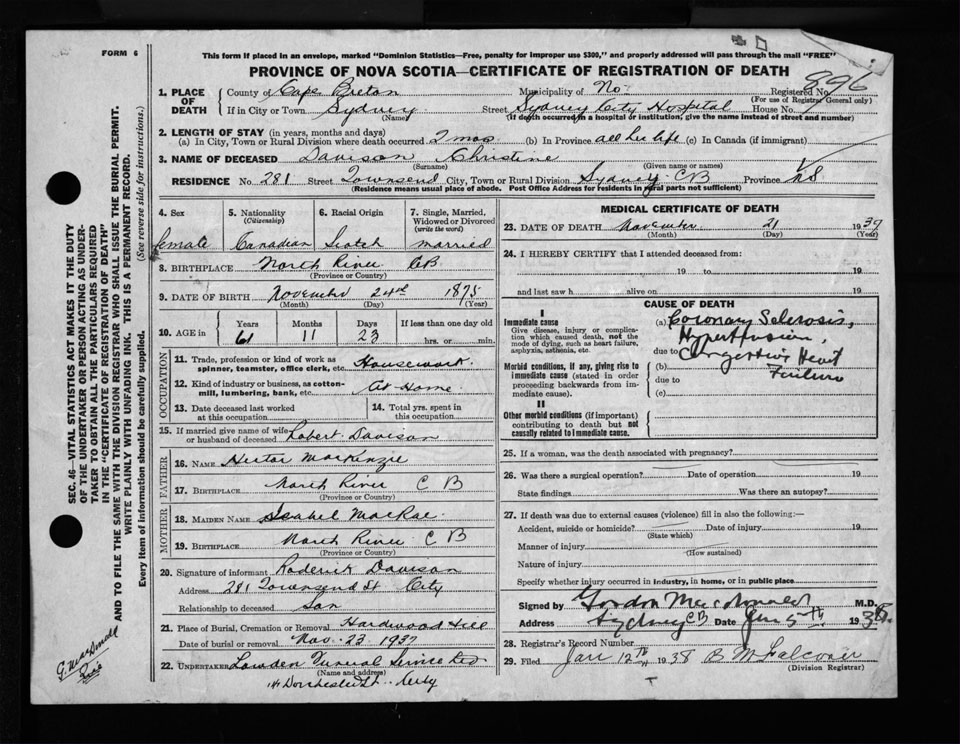 FORM 6
This form if placed in an envelope, marked "Dominion Statistics—Free, penalty for improper use $300," and properly addressed will pass through the mail "FREE"
PROVINCE OF NOVA SCOTIA—CERTIFICATE OF REGISTRATION OF DEATH
896
1. PLACE OF DEATH
County of Cape Breton Municipality of No. Registered No.
(For use of Registrar General only)
If in City or Town Sydney Street Sydney City Hospital House No.
(Name) (If death occurred in a hospital or institution, give the name instead of street and number)
2. LENGTH OF STAY (in years, months and days)
(a) In City, Town or Rural Division where death occurred 2 mos (b) In Province all her life (c) In Canada (if immigrant)
3. NAME OF DECEASED Davison Christine
(Surname) (Given name or names)
RESIDENCE No. 281 Street Townsend City, Town or Rural Division Sydney CB Province N.S
(Residence means usual place of abode. Post Office Address for residents in rural parts not sufficient)
4. Sex 5. Nationality (Citizenship) 6. Racial Origin 7. Single, Married, Widowed or Divorced (write the word)
female Canadian Scotch married
8. BIRTHPLACE North River CB
(Province or Country)
9. DATE OF BIRTH November 24th 1875
(Month) (Day) (Year)
10. AGE in Years Months Days If less than one day old
61 11 23 hrs. or min.
OCCUPATION
11. Trade, profession or kind of work as spinner, teamster, office clerk, etc. Housework
12. Kind of industry or business, as cotton-mill, lumbering, bank, etc. At Home
13. Date deceased last worked at this occupation 14. Total yrs. spent in this occupation
15. If married give name of wife or husband of deceased Robert Davison
FATHER
16. NAME Hector MacKenzie
17. BIRTHPLACE North River C B
(Province or Country)
MOTHER
18. MAIDEN NAME Isabel MacRae
19. BIRTHPLACE North River C B
(Province or Country)
20. Signature of informant Roderick Davison
Address 281 Townsend St City
Relationship to deceased son
21. Place of Burial, Cremation or Removal Hardwood Hill
Date of burial or removal Nov. 23 1937
22. UNDERTAKER Lowden Funeral Service Ltd
(Name and address)
Dorchester St. City
MEDICAL CERTIFICATE OF DEATH
23. DATE OF DEATH November 21 1937
(Month) (Day) (Year)
24. I HEREBY CERTIFY that I attended deceased from:
19 to 19
and last saw h alive on 19
CAUSE OF DEATH
I
Immediate cause
Give disease, injury or complication which caused death, not the mode of dying, such as heart failure, asphyxia, asthenia, etc.
(a) Coronary Sclerosis,
Hypertension,
due to Congestive Heart
Failure
Morbid conditions, if any, giving rise to immediate cause (stated in order proceeding backwards from immediate cause).
(b)
due to
(c)
II
Other morbid conditions (if important) contributing to death but not causally related to immediate cause.
25. If a woman, was the death associated with pregnancy?
26. Was there a surgical operation? Date of operation 19
State findings Was there an autopsy?
27. If death was due to external causes (violence) fill in also the following:—
Accident, suicide or homicide? Date of injury 19
(State which)
Manner of injury
(How sustained)
Nature of injury
Specify whether injury occurred in industry, in home, or in public place
Signed by Gordon Macdonald M.D.
Address Sydney CB Date Jan 5th 1938
28. Registrar's Record Number
29. Filed Jan 12th 1938 B M Falconer
(Division Registrar)
SEC. 46—VITAL STATISTICS ACT MAKES IT THE DUTY
OF THE UNDERTAKER OR PERSON ACTING AS UNDER-
TAKER TO OBTAIN ALL THE PARTICULARS REQUIRED
IN THE "CERTIFICATE OF REGISTRATION OF DEATH"
AND TO FILE THE SAME WITH THE DIVISION REGISTRAR WHO SHALL ISSUE THE BURIAL PERMIT.
WRITE PLAINLY WITH UNFADING INK. THIS IS A PERMANENT RECORD.
Every item of information should be carefully supplied. (See reverse side for instructions.)